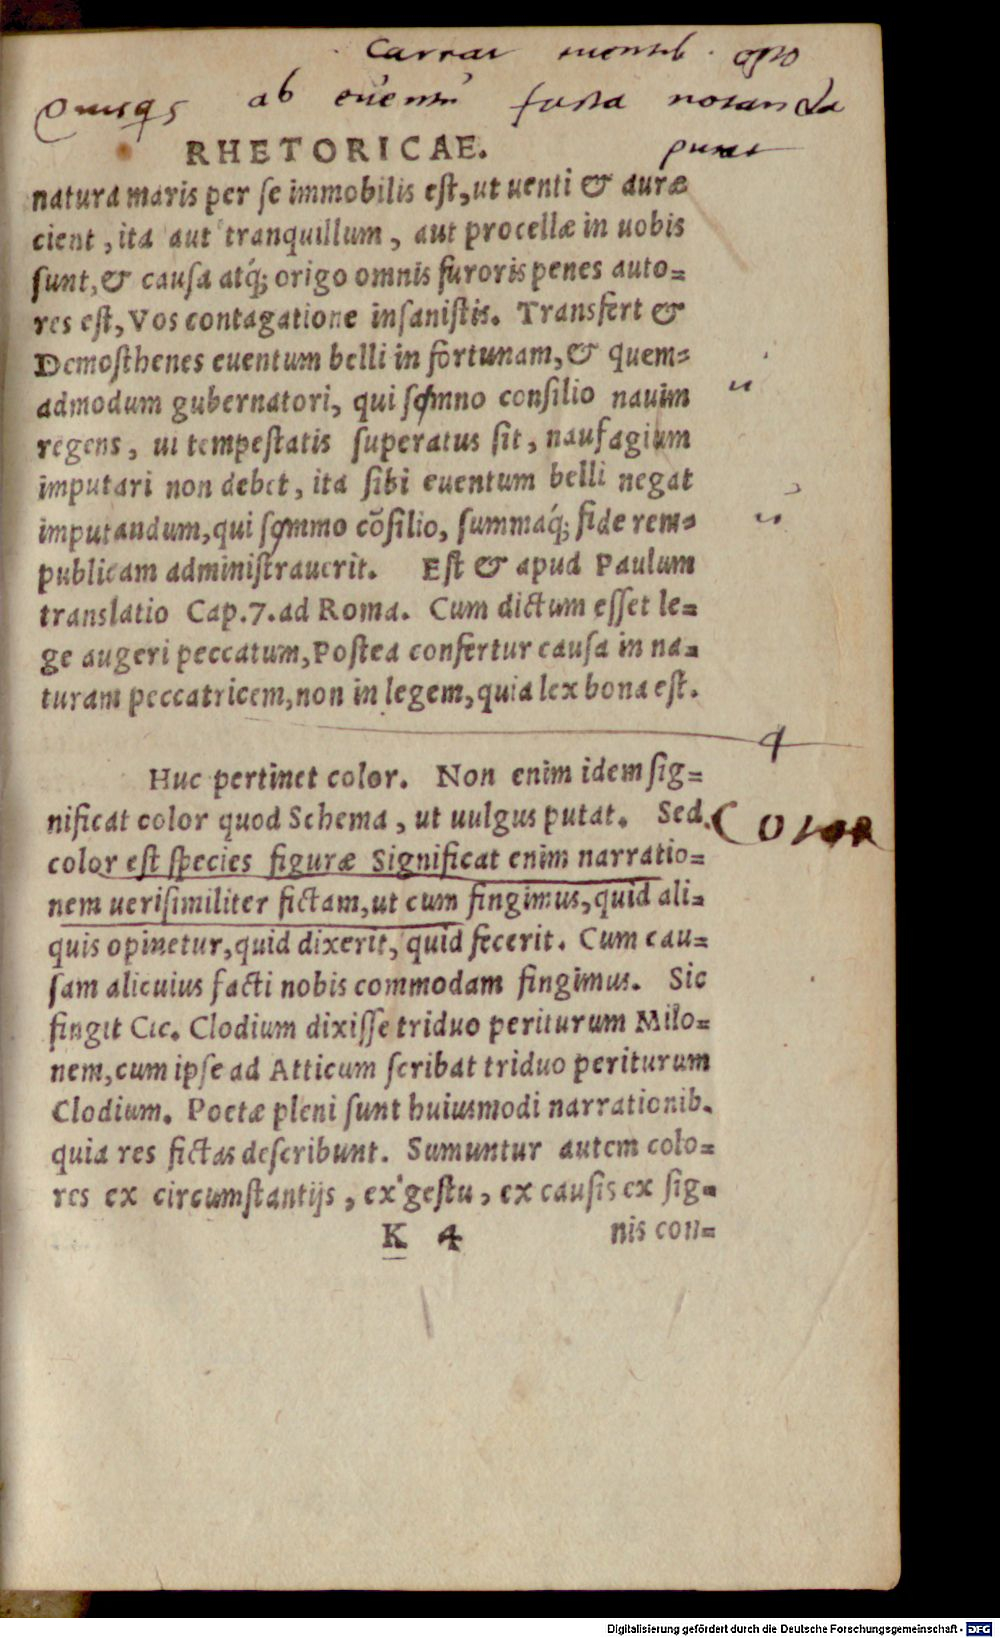 ab euentu facta notanda
Quisqs
RHETORICAE.
natura maris per se immobilis est, ut uenti & auræ
cient, ita aut tranquillum, aut procellæ in uobis
sunt, & causa atq́; origo omnis furoris penes auto=
res est, Vos contagatione insanistis. Transfert &
Demosthenes euentum belli in fortunam, & quem=
admodum gubernatori, qui somno consilio nauim
regens, ui tempestatis superatus sit, naufagium
imputari non debet, ita sibi euentum belli negat
imputandum, qui sommo cõsilio, summaq́; fide rem=
publicam administrauerit. Est & apud Paulum
translatio Cap.7. ad Roma. Cum dictum esset le=
ge augeri peccatum, Postea confertur causa in na=
turam peccatricem, non in legem, quia lex bona est.
4
Huc pertinet color. Non enim idem sig=
nificat color quod Schema, ut uulgus putat. Sed
Color
color est species figuræ Significat enim narratio=
nem uerisimiliter fictam, ut cum fingimus, quid ali=
quis opinetur, quid dixerit, quid fecerit. Cum cau=
sam alicuius facti nobis commodam fingimus. Sic
fingit Cic. Clodium dixisse triduo periturum Milo=
nem, cum ipse ad Atticum scribat triduo periturum
Clodium. Poetæ pleni sunt huiusmodi narrationib.
quia res fictas describunt. Sumuntur autem colo=
res ex circumstantijs, ex gestu, ex causis ex sig=
K 4 nis con=
Digitalisierung gefördert durch die Deutsche Forschungsgemeinschaft - DFG